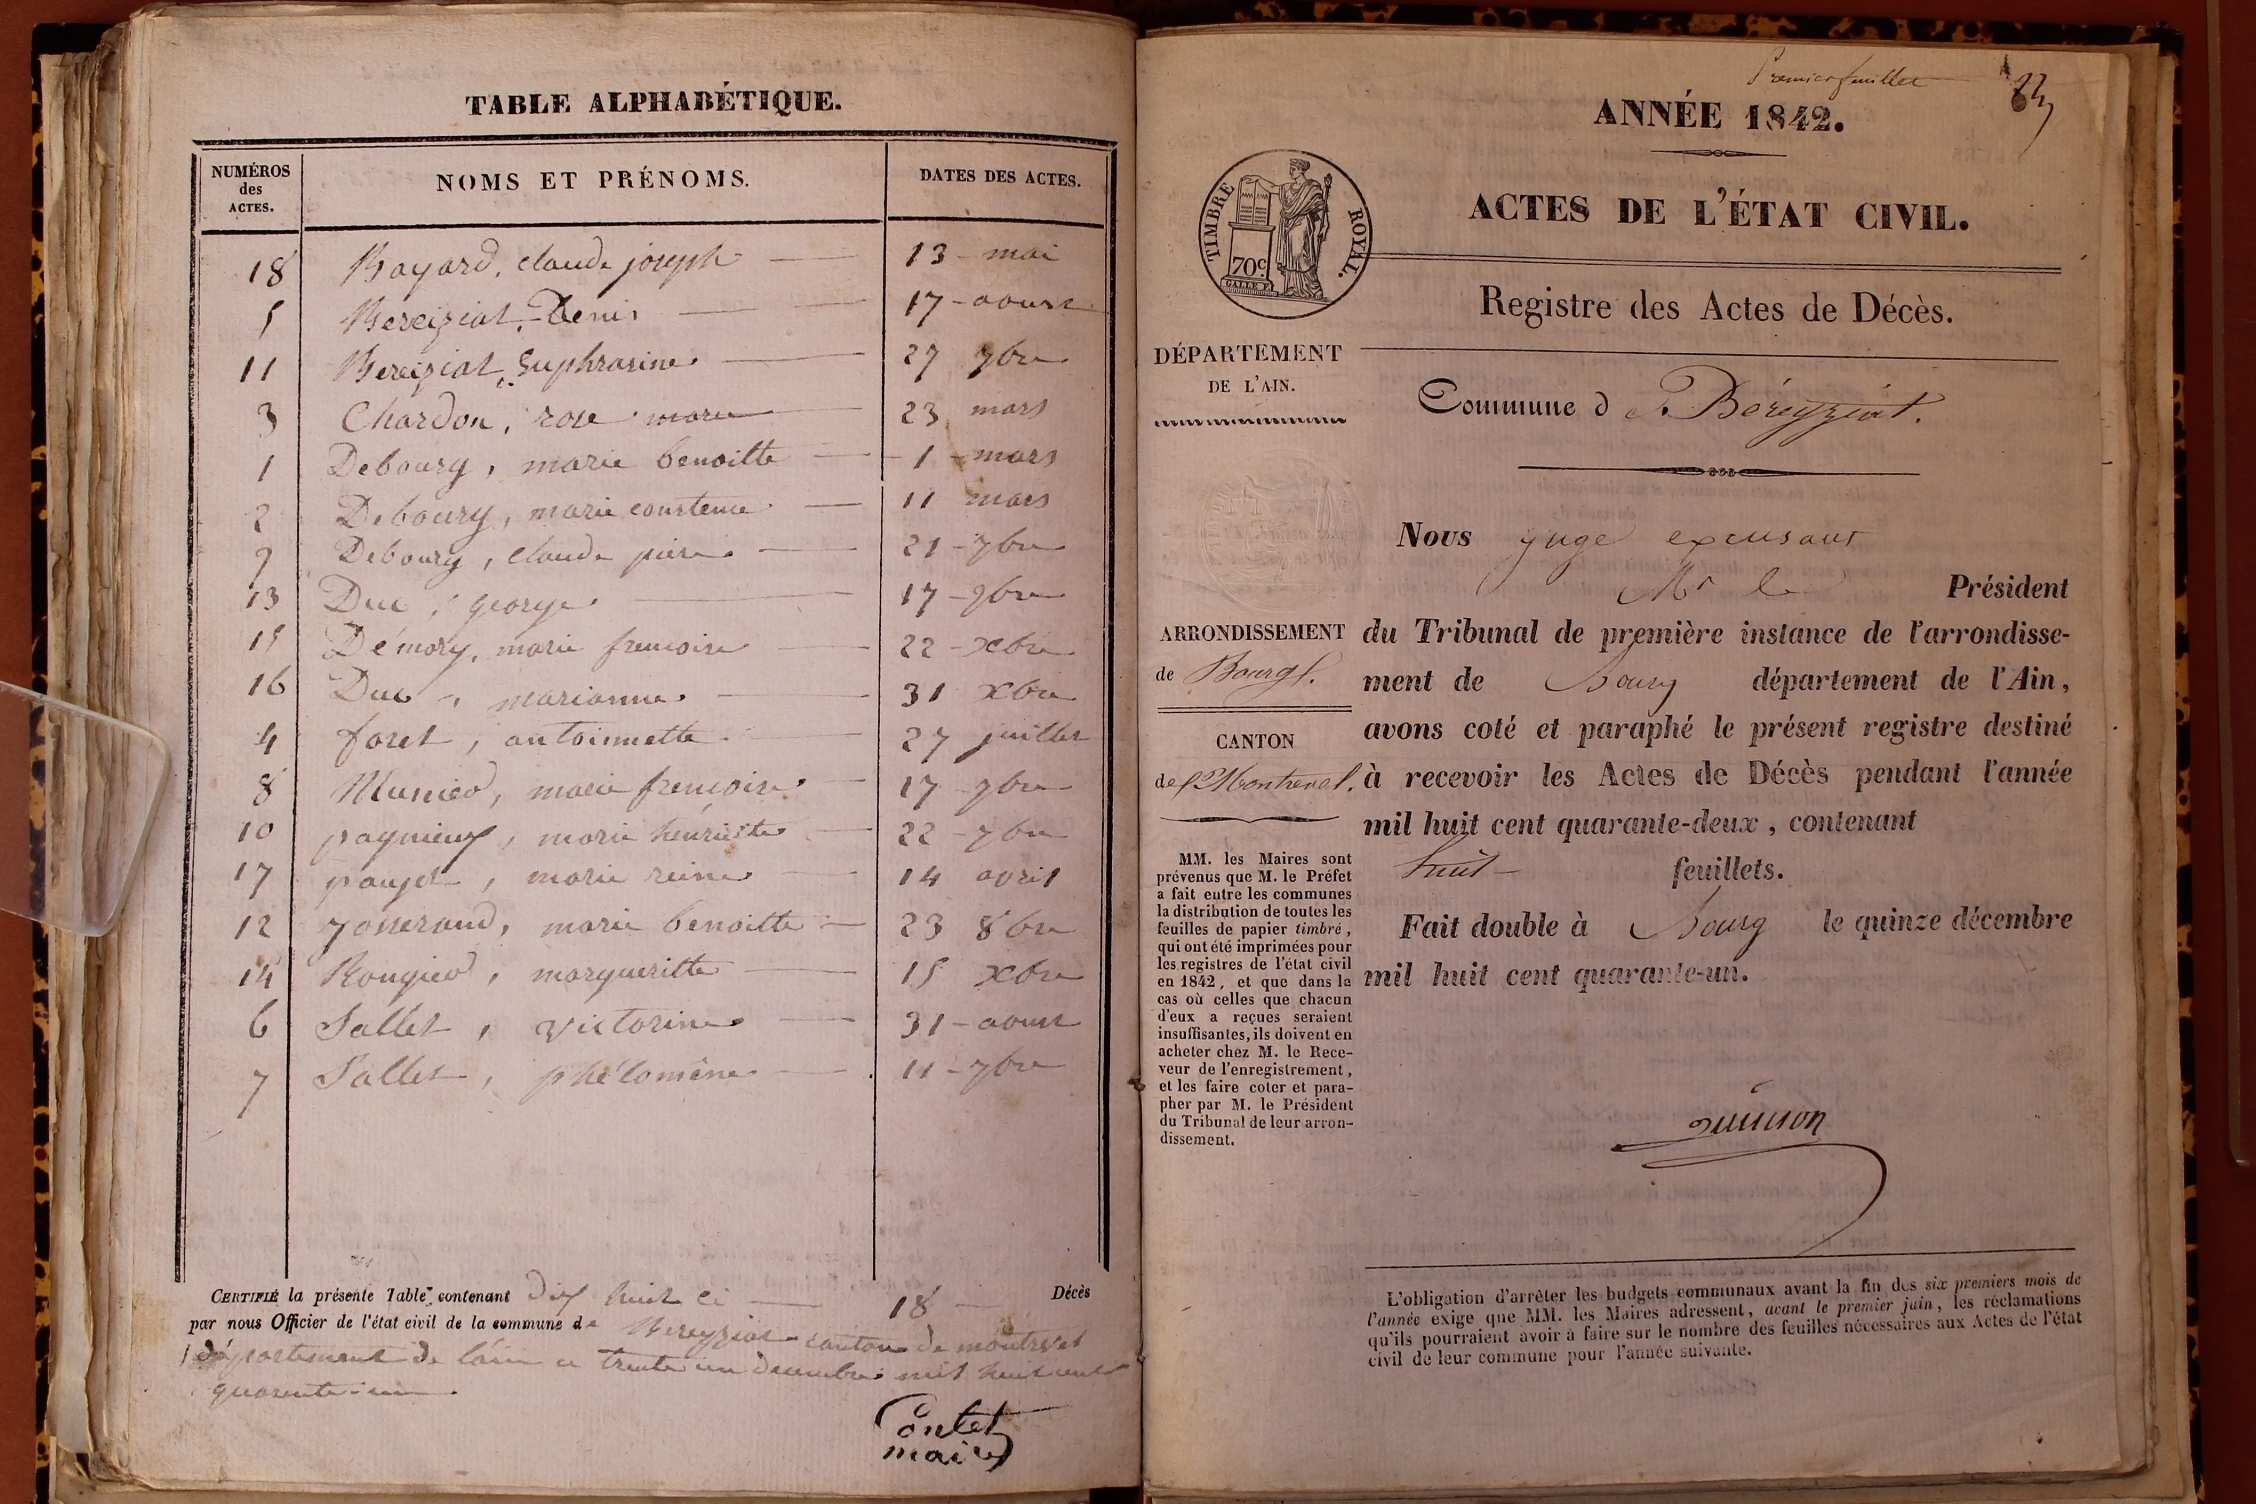 TABLE ALPHABÉTIQUE.
NUMÉROS des ACTES. NOMS ET PRÉNOMS. DATES DES ACTES.
18 Bayard, claude joseph 13 - mai
5 Bereiziat, Denis 17 - aoust
11 Bereiziat, Euphrasine 27 7bre
3 Chardon, rose marie 23 mars
1 Debourg, marie benoitte 1 - mars
2 Debourg, marie constence 11 mars
9 Debourg, claude pierre 21 - 7bre
13 Duc, george 17 - 9bre
15 Démory, marie frencoise 22 - xbre
16 Duc, marianne 31 xbre
4 foret, antoinnette 27 juillet
8 Munier, marie frencoise 17 - 7bre
10 pagnieux, marie henriette 22 - 7bre
17 pauget, marie reine 14 avril
12 josserand, marie benoitte 23 8bre
14 Rougier, margueritte 15 xbre
6 Sallet, victorine 31 - aoust
7 Sallet, phélomène 11 - 7bre
CERTIFIÉ la présente Table, contenant dix huit ci 18 Décès
par nous Officier de l'état civil de la commune de Bereyziat canton de montrevel
département de l'ain ce trente un decembre mil huit cent
quarente-un.
Contet
maire
Premier feuillet
ANNÉE 1842.
TIMBRE ROYAL.
70c.
ACTES DE L'ÉTAT CIVIL.
Registre des Actes de Décès.
DÉPARTEMENT
DE L'AIN.
Commune d e Béreyziat.
Nous juge excusant
Mr le Président
ARRONDISSEMENT
de Bourg.
CANTON
de Montrevel.
du Tribunal de première instance de l'arrondisse-
ment de Bourg département de l'Ain,
avons coté et paraphé le présent registre destiné
à recevoir les Actes de Décès pendant l'année
mil huit cent quarante-deux, contenant
huit feuillets.
Fait double à Bourg le quinze décembre
mil huit cent quarante-un.
MM. les Maires sont
prévenus que M. le Préfet
a fait entre les communes
la distribution de toutes les
feuilles de papier timbré,
qui ont été imprimées pour
les registres de l'état civil
en 1842, et que dans le
cas où celles que chacun
d'eux a reçues seraient
insuffisantes, ils doivent en
acheter chez M. le Rece-
veur de l'enregistrement,
et les faire coter et para-
pher par M. le Président
du Tribunal de leur arron-
dissement.
L'obligation d'arrêter les budgets communaux avant la fin des six premiers mois de
l'année exige que MM. les Maires adressent, avant le premier juin, les réclamations
qu'ils pourraient avoir à faire sur le nombre des feuilles nécessaires aux Actes de l'état
civil de leur commune pour l'année suivante.